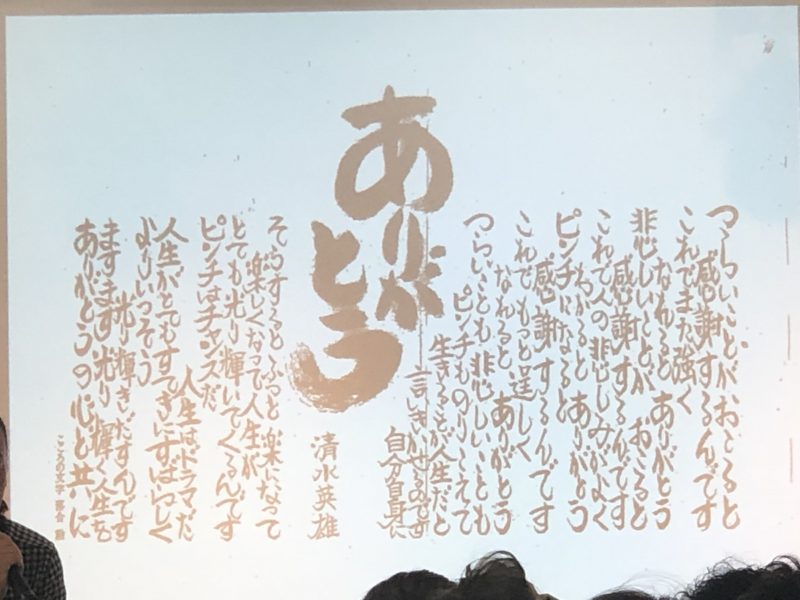 ありが
とう
つらいことがおこると
感謝するんです
これでまた強く
なれると ありがとう
悲しいことが おこると
感謝するんです
これで人の悲しみがよく
わかると ありがとう
ピンチになると
感謝するんです
これでもっと逞しく
なれると ありがとう
つらいことも悲しいことも
ピンチものりこえて
生きることが人生だと
言いきかせるのです
自分自身に
清水英雄
そうすると ふっと 楽になって
楽しくなって 人生が
とても光り輝いてくるんです
ピンチはチャンスだ
人生はドラマだ
人生がとてもすてきにすばらしく
よりいっそう
光り輝きだすんです
ますます光り輝く人生を
ありがとうの心と共に
こころの文字 落合